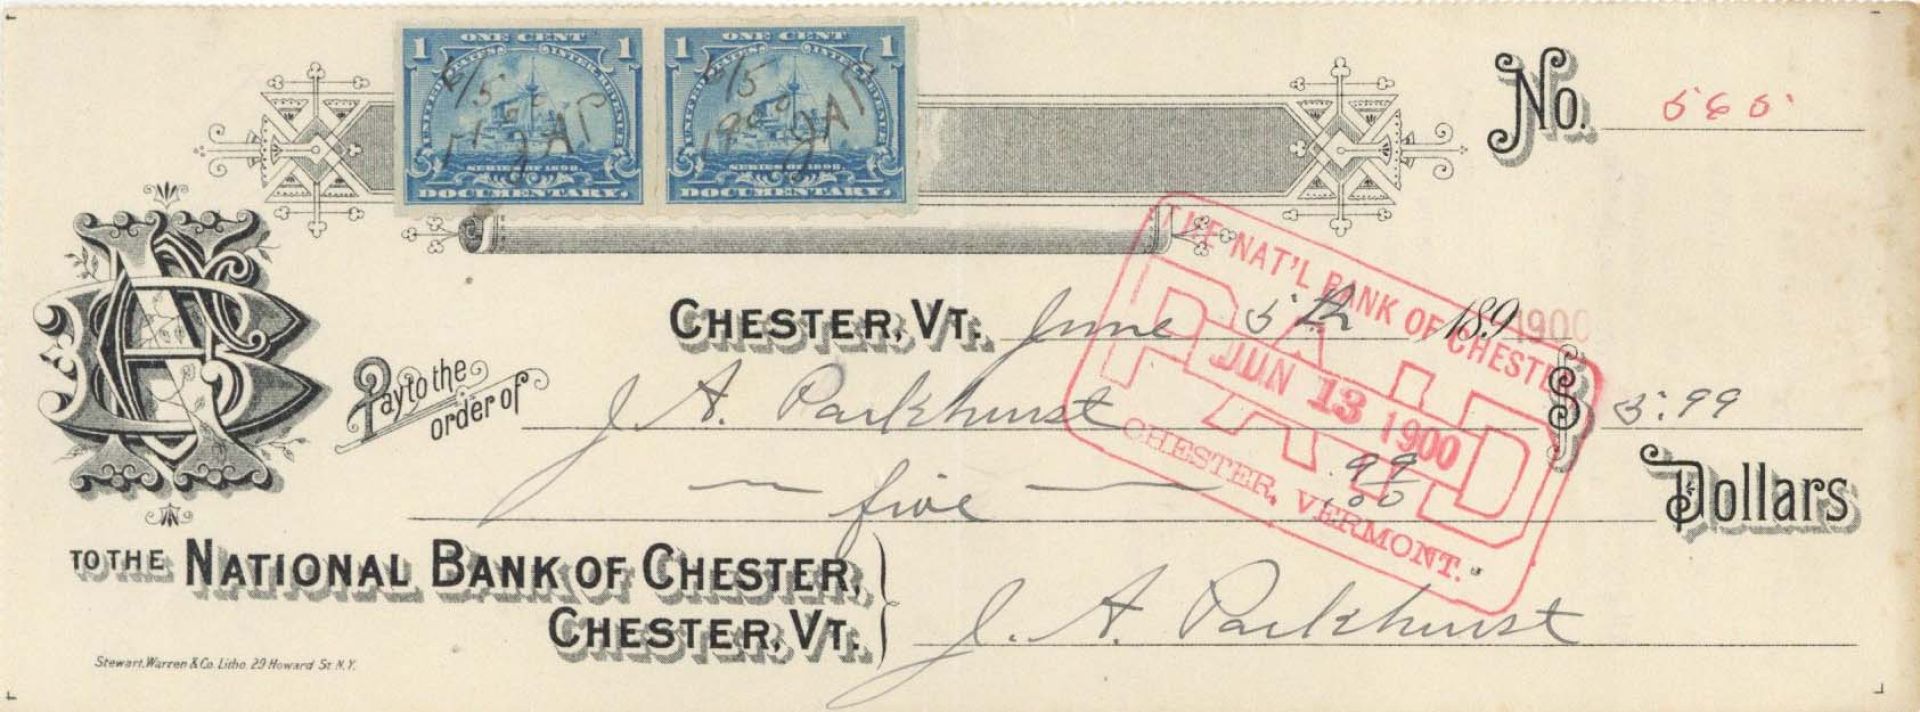 1 ONE CENT 1
UNITED STATES INTER. REVENUE
SERIES OF 1898.
DOCUMENTARY.
6/5
1900
JAP
1 ONE CENT 1
UNITED STATES INTER. REVENUE
SERIES OF 1898.
DOCUMENTARY.
6/5
1900
JAP
No. 565
THE NAT'L BANK OF CHESTER
PAID
JUN 13 1900
CHESTER, VERMONT.
CHESTER, VT. June 5th 189 1900
Pay to the order of J. A. Parkhurst $ 5.99
five 99/100 Dollars
TO THE NATIONAL BANK OF CHESTER,
CHESTER, VT.
J. A. Parkhurst
Stewart, Warren & Co. Litho. 29 Howard St. N.Y.